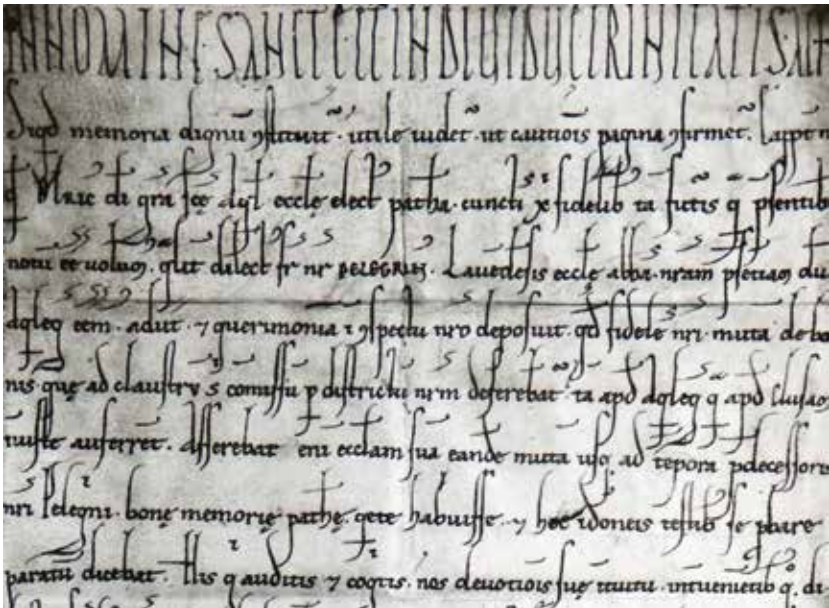 IN NOMINE SANCTE ET INDIVIDUE TRINITATIS
Siqd memoria dignu ɔstituit · utile uidet · ut cautiois pagina ɔfirmet ·
di gra sce aql eccle elect patha · cuncti xp fidelib ta futis q psentib
notu ee uolum · qlit dilect fr nr PELEGRIN · eccle abba · nram psentiam
aqleg · adiit · ⁊ querimonia ɔspectu nro deposuit · qd fidele nri · muta de bo
nis · que ad claustru s comissu p districtu nrm deferebat · ta apd aqleg q apd clusas
iuste auferret · Asserebat eni eccliam sua eande muta usq ad tepora pdecessoris
nri Pelegrini · bone memorie pathe · qete habuisse · ⁊ hoc idoneis testib se pbare
paratu dicebat · His q auditis ⁊ cogtis · nos deuotiois sue · q · di